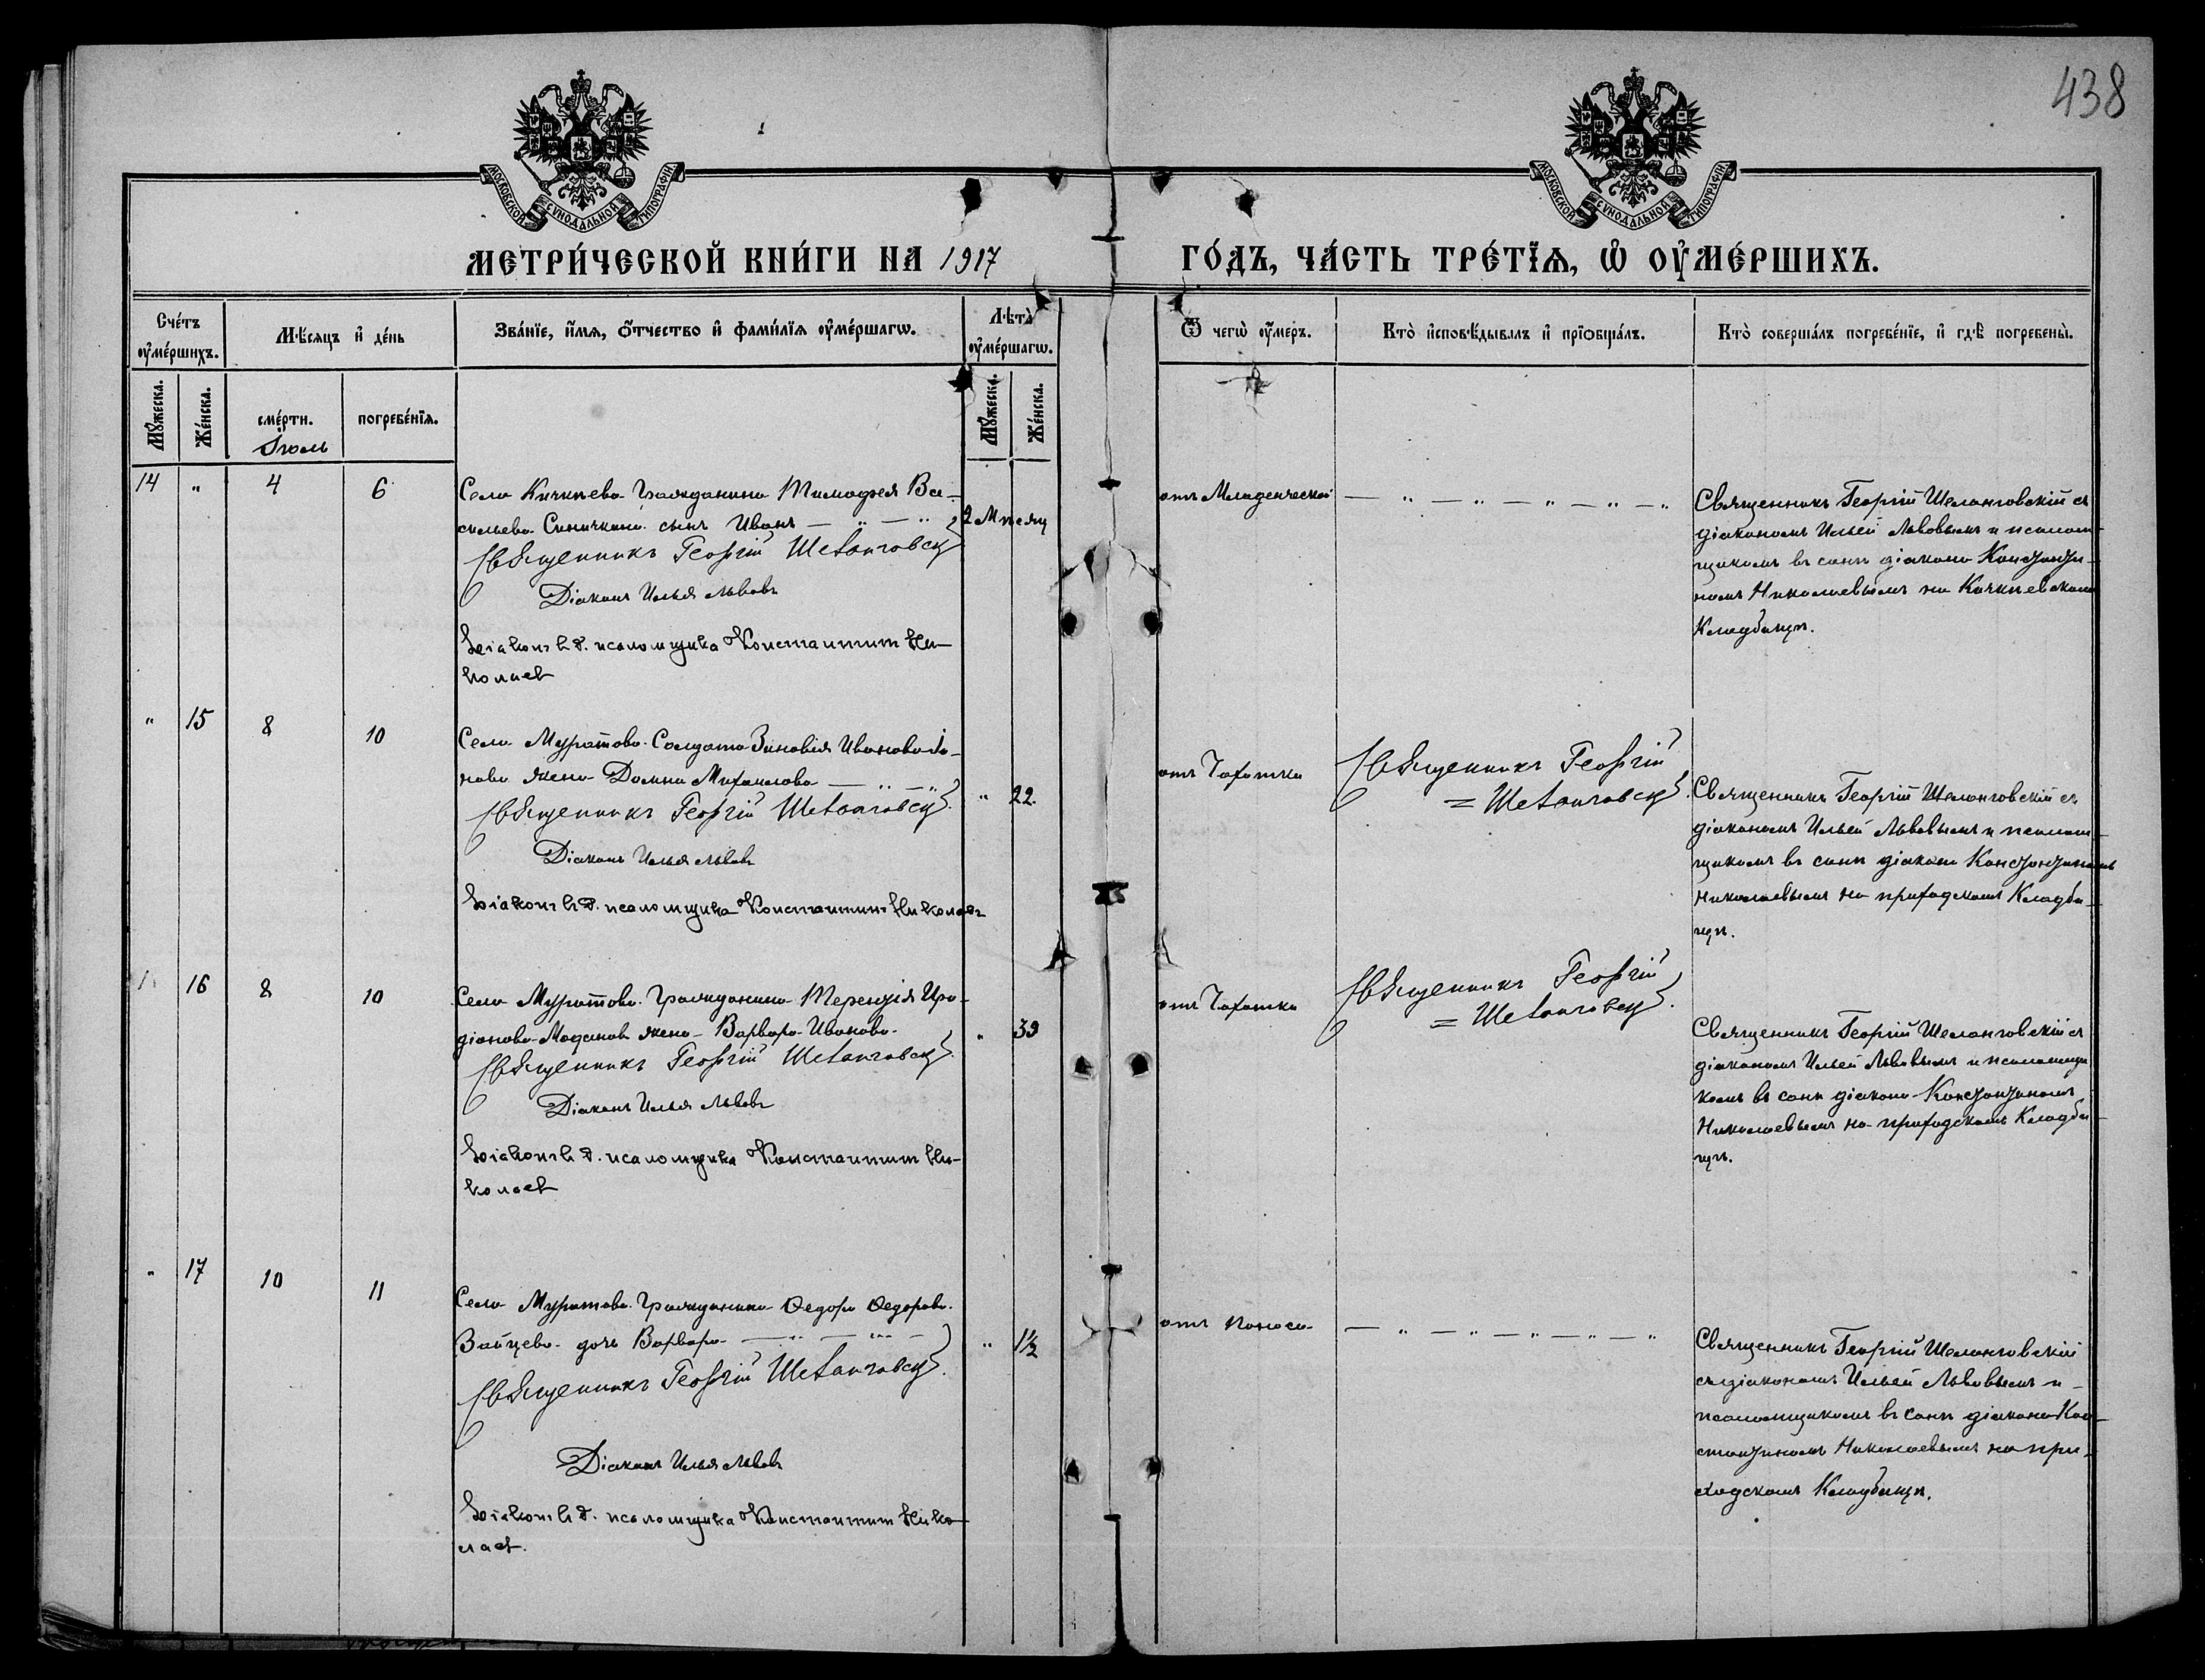 438
МОСКОВСКОЙ СѴНОДАЛЬНОЙ ТИПОГРАФІИ.
МОСКОВСКОЙ СѴНОДАЛЬНОЙ ТИПОГРАФІИ.
МЕТРИ́ЧЕСКОЙ КНИ́ГИ НА 1917
ГО́ДЪ, ЧА́СТЬ ТРЕ́ТЇѦ, Ѡ҆ ОУ҆МЕ́РШИХЪ.
Сче́тъ оу҆ме́ршихъ.
Мѣ́сяцъ и҆ де́нь
Зва́нїе, и҆́мѧ, ѻ҆́тчество и҆ фами́лїѧ оу҆ме́ршагѡ.
Лѣ́та̀ оу҆ме́ршагѡ.
Ѿ чегѡ̀ оу҆́меръ.
Кто̀ и҆сповѣ́дывалъ и҆ прїѡбща́лъ.
Кто̀ соверша́лъ погребе́нїе, и҆ гдѣ̀ погребены̀.
Мꙋ́жеска.
Же́нска.
сме́рти.
погребе́нїѧ.
Мꙋ́жеска.
Же́нска.
Іюль
14 " 4 6
Села Кичкѣева гражданина Тимофея Ва-
сильева Синичкина сынъ Иванъ — " — "
Священникъ Георгій Шелонговскій
Діаконъ Илья Львовъ
Діаконъ И. д. псаломщика Константинъ Ни-
колаевъ
2 Мѣсяц
отъ Младенческой
— " — " — " — " — "
Священникъ Георгій Шелонговскій съ
діакономъ Ильей Львовымъ и псалом-
щикомъ въ санѣ діакона Константи-
номъ Николаевымъ на Кичкѣевскомъ
Кладбищѣ.
" 15 8 10
Села Муратова Солдата Зиновія Иванова
нова жена Домна Михаилова — " — "
Священникъ Георгій Шелонговскій
Діаконъ Илья Львовъ
Діаконъ И. д. псаломщика Константинъ Николаевъ
" 22.
отъ Чахотки
Священникъ Георгій
= Шелонговскій.
Священникъ Георгій Шелонговскій съ
діакономъ Ильей Львовымъ и псалом-
щикомъ въ санѣ діакона Константиномъ
Николаевымъ на приходскомъ Кладби-
щѣ.
16 8 10
Села Муратова гражданина Терентія Иро-
діонова жена Варвара Иванова
Священникъ Георгій Шелонговскій.
Діаконъ Илья Львовъ
Діаконъ И. д. псаломщика Константинъ Ни-
колаевъ
" 39
отъ Чахотки
Священникъ Георгій
= Шелонговскій.
Священникъ Георгій Шелонговскій съ
діакономъ Ильей Львовымъ и псаломщи
комъ въ санѣ діакона Константиномъ
Николаевымъ на приходскомъ Кладби-
щѣ.
" 17 10 11
Села Муратова гражданина Ѳедора Ѳедорова
Зайцева дочь Варвара — " — " —
Священникъ Георгій Шелонговскій.
Діаконъ Илья Львовъ
Діаконъ И. д. псаломщика Константинъ Нико-
лаевъ.
" 1½
отъ Поноса
— " — " — " — " — "
Священникъ Георгій Шелонговскій
съ діакономъ Ильей Львовымъ и
псаломщикомъ въ санѣ діакона Кон-
стантиномъ Николаевымъ на при-
ходскомъ Кладбищѣ.